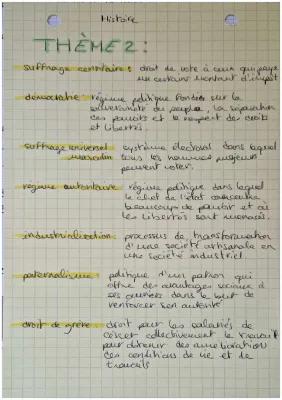 Histoire
THÈME 2 :
suffrage censitaire : droit de vote à ceux qui paye
un certains montant d'impôt
démocratie : régime politique fondés sur la
souveraineté du peuple, la séparation
des pouvoirs et le respect des droits
et libertés.
suffrage universel système électoral dans lequel
masculin tous les hommes majeurs
peuvent voter.
régime autoritaire : régime politique dans lequel
le chef de l'état concentre
beaucoup de pouvoir et où
les libertés sont menacés.
industrialisation : processus de transformation
d'une société artisanale en
une société industriel.
paternalisme : politique d'un patron qui
offre des avantages sociaux à
ses ouvriers dans le but de
renforcer son autorité
droit de grève : droit pour les salariés de
cesser collectivement le travail
pour obtenir des amélioration
des conditions de vie et de
travails